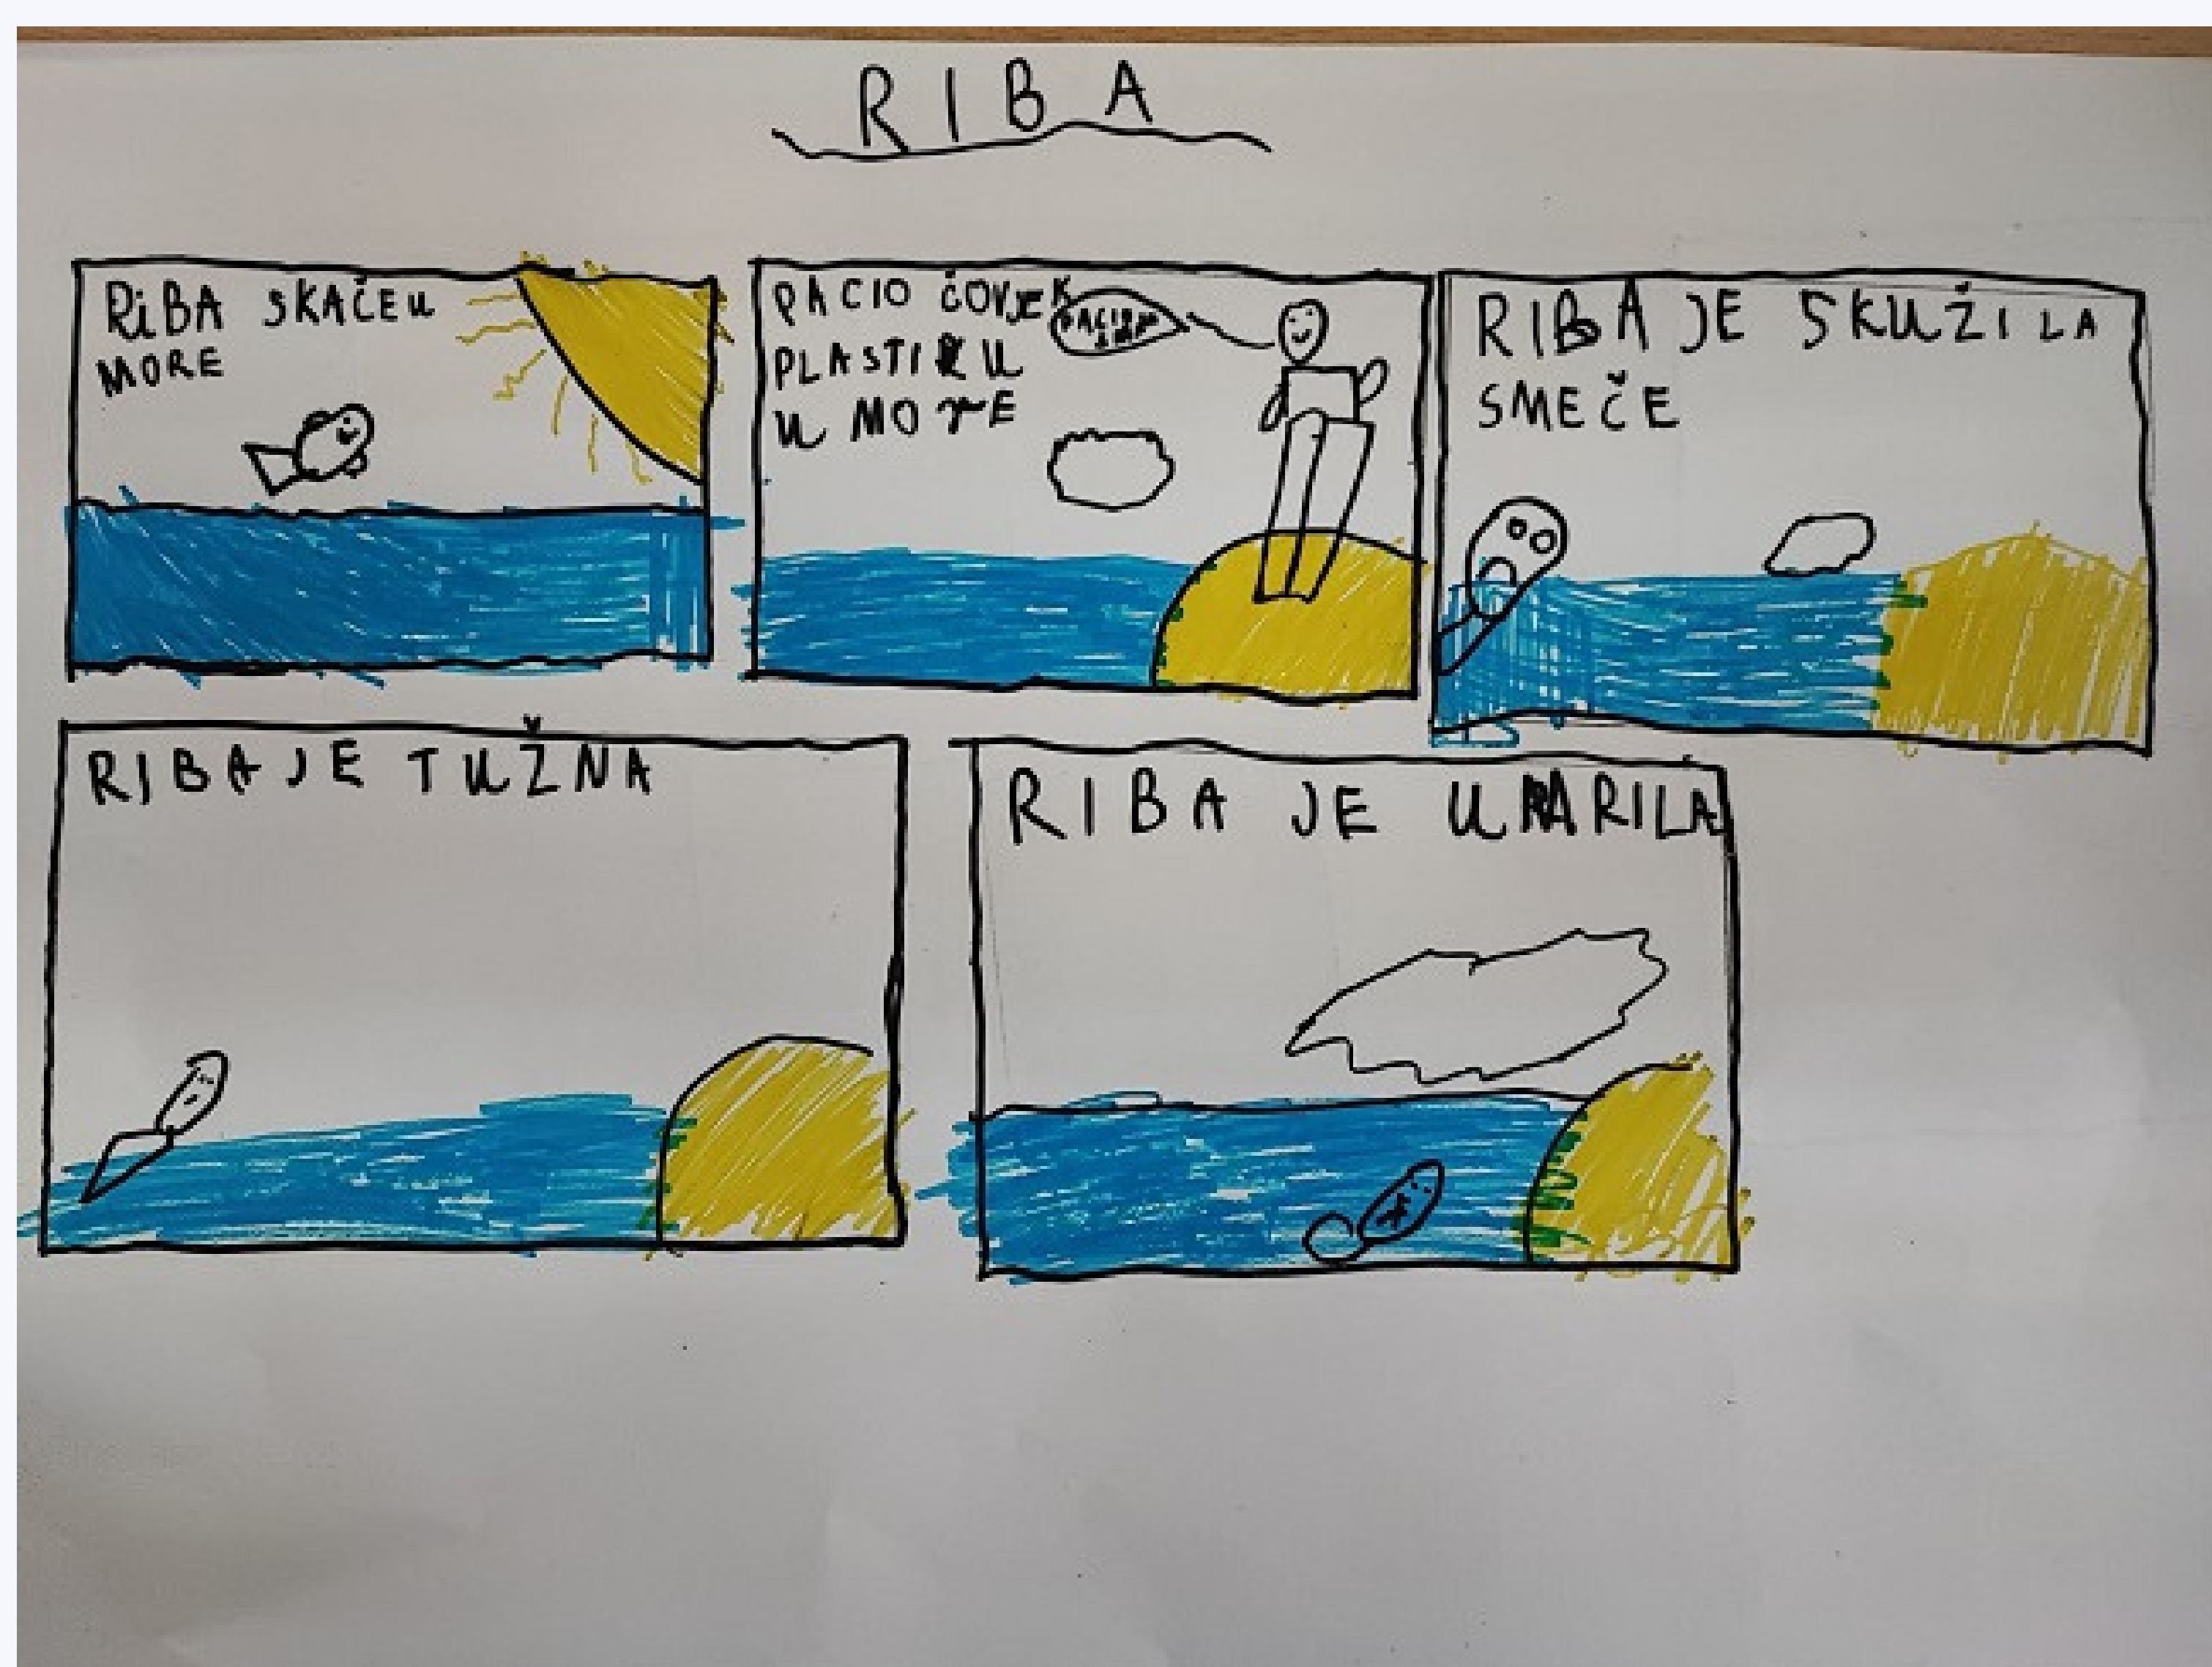 RIBA
RIBA SKAČE U
MORE
PACIO ČOVJEK
PLASTIKU
U MORE
RIBA JE SKUŽILA
SMEČE
RIBA JE TUŽNA
RIBA JE UMRILA